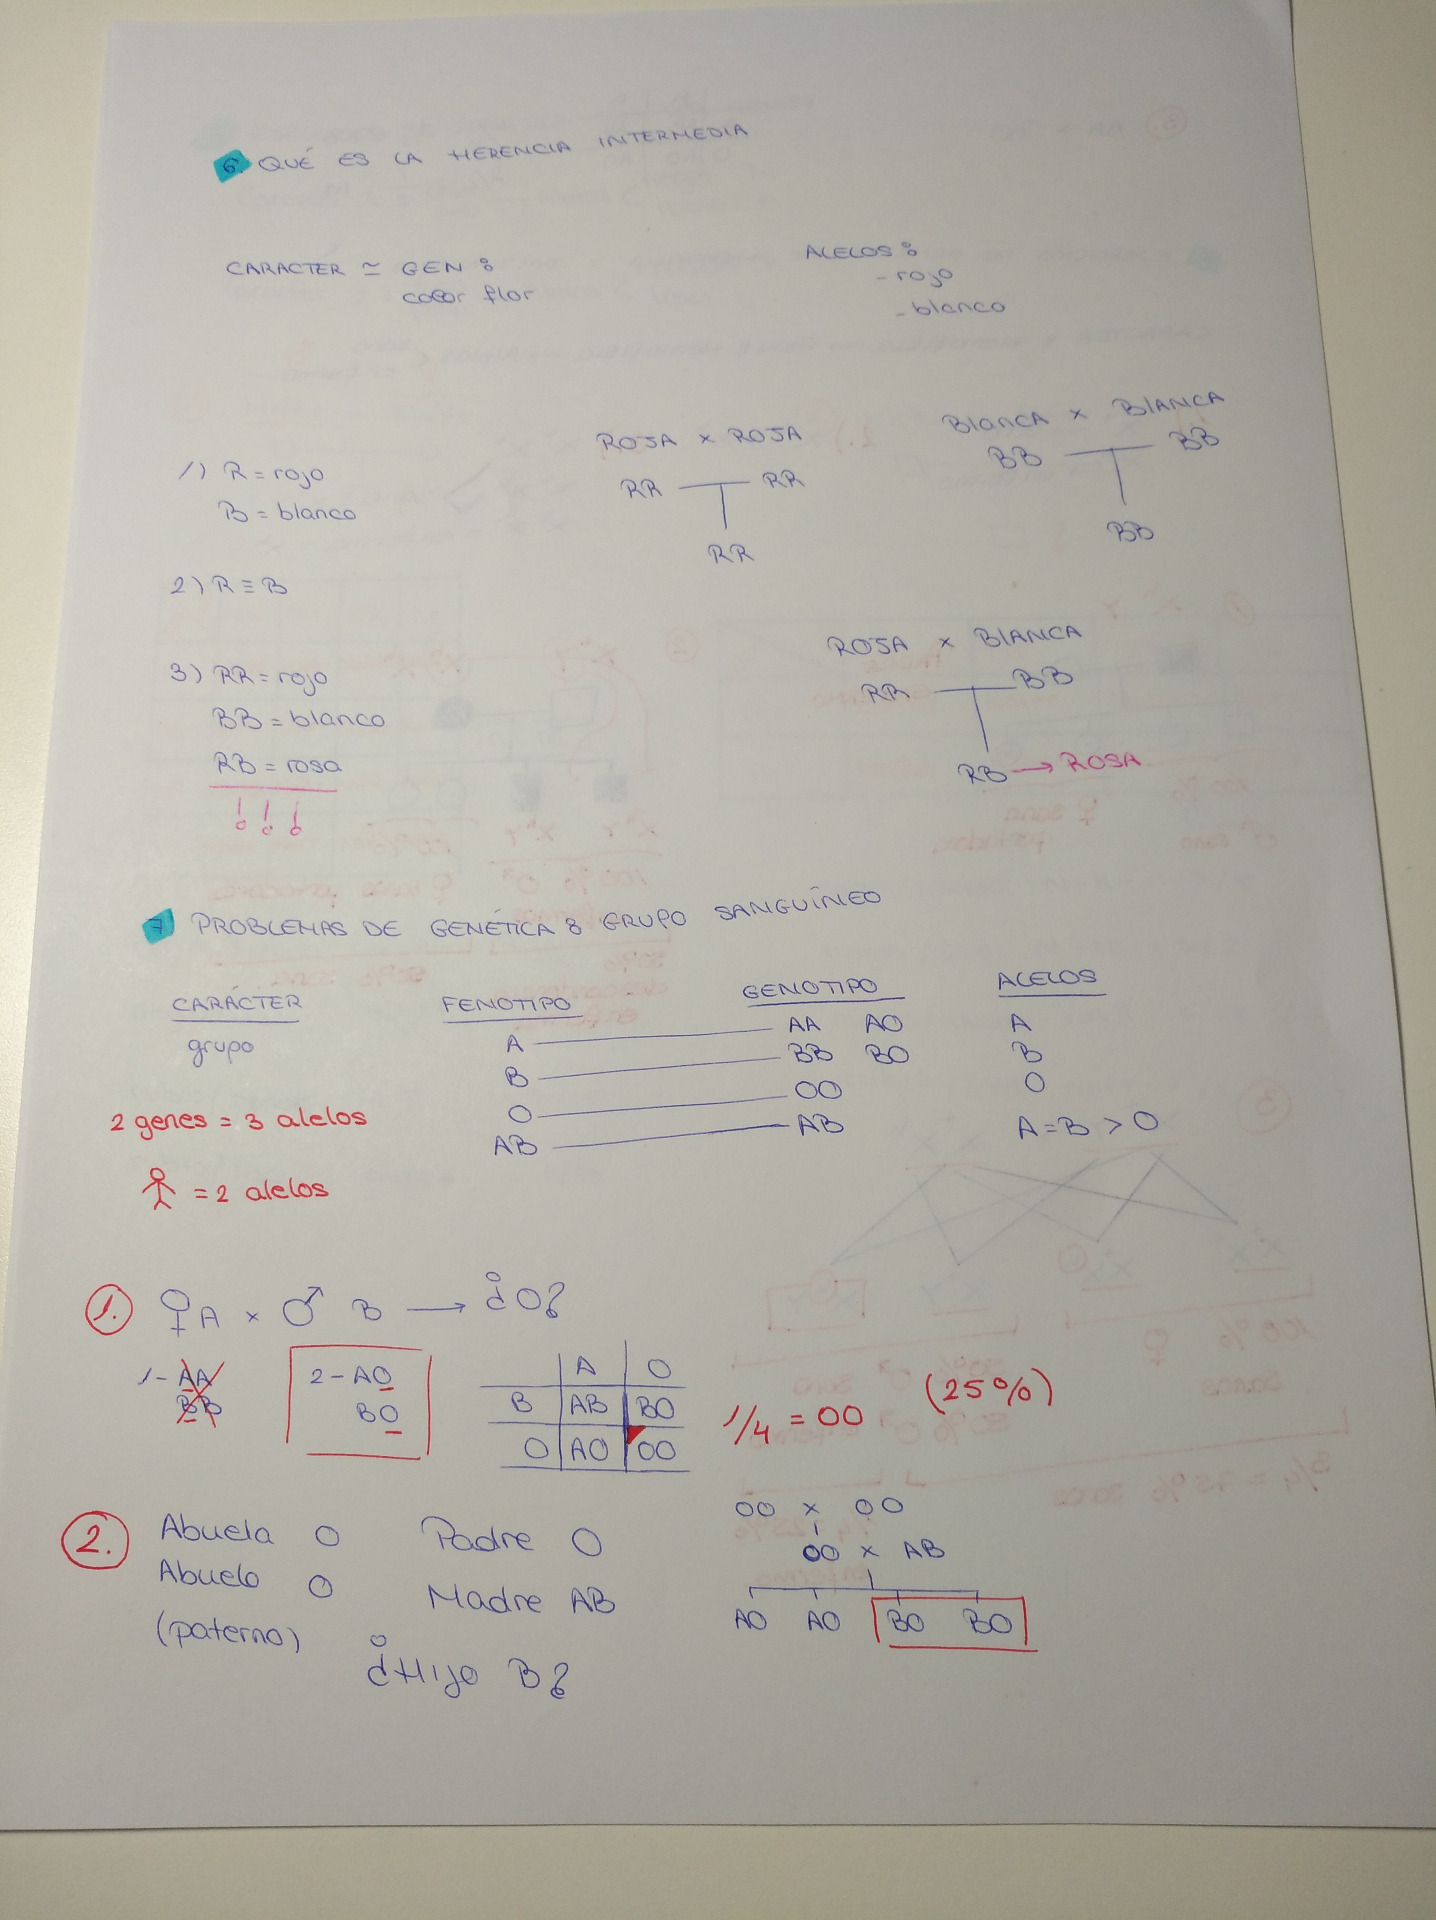 6. QUÉ ES LA HERENCIA INTERMEDIA
CARACTER ≃ GEN:
color flor
ALELOS:
- rojo
- blanco
1) R = rojo
B = blanco
ROJA x ROJA
RR RR
RR
BlANCA x BlANCA
BB BB
BB
2) R ≡ B
3) RR = rojo
BB = blanco
RB = rosa
!!!
ROJA x BlANCA
RR BB
RB → ROSA
7 PROBLEMAS DE GENÉTICA: GRUPO SANGUÍNEO
CARÁCTER FENOTIPO GENOTIPO ALELOS
grupo
A AA AO A
B BB BO B
O OO O
AB AB A=B > O
2 genes = 3 alelos
= 2 alelos
1. ♀ A x ♂ B → ¿O?
1- AA
BB
2 - AO
BO
A O
B AB BO
O AO OO
1/4 = OO (25%)
2. Abuela O Padre O
Abuelo O Madre AB
(paterno)
¿Hijo B?
OO x OO
OO x AB
AO AO BO BO